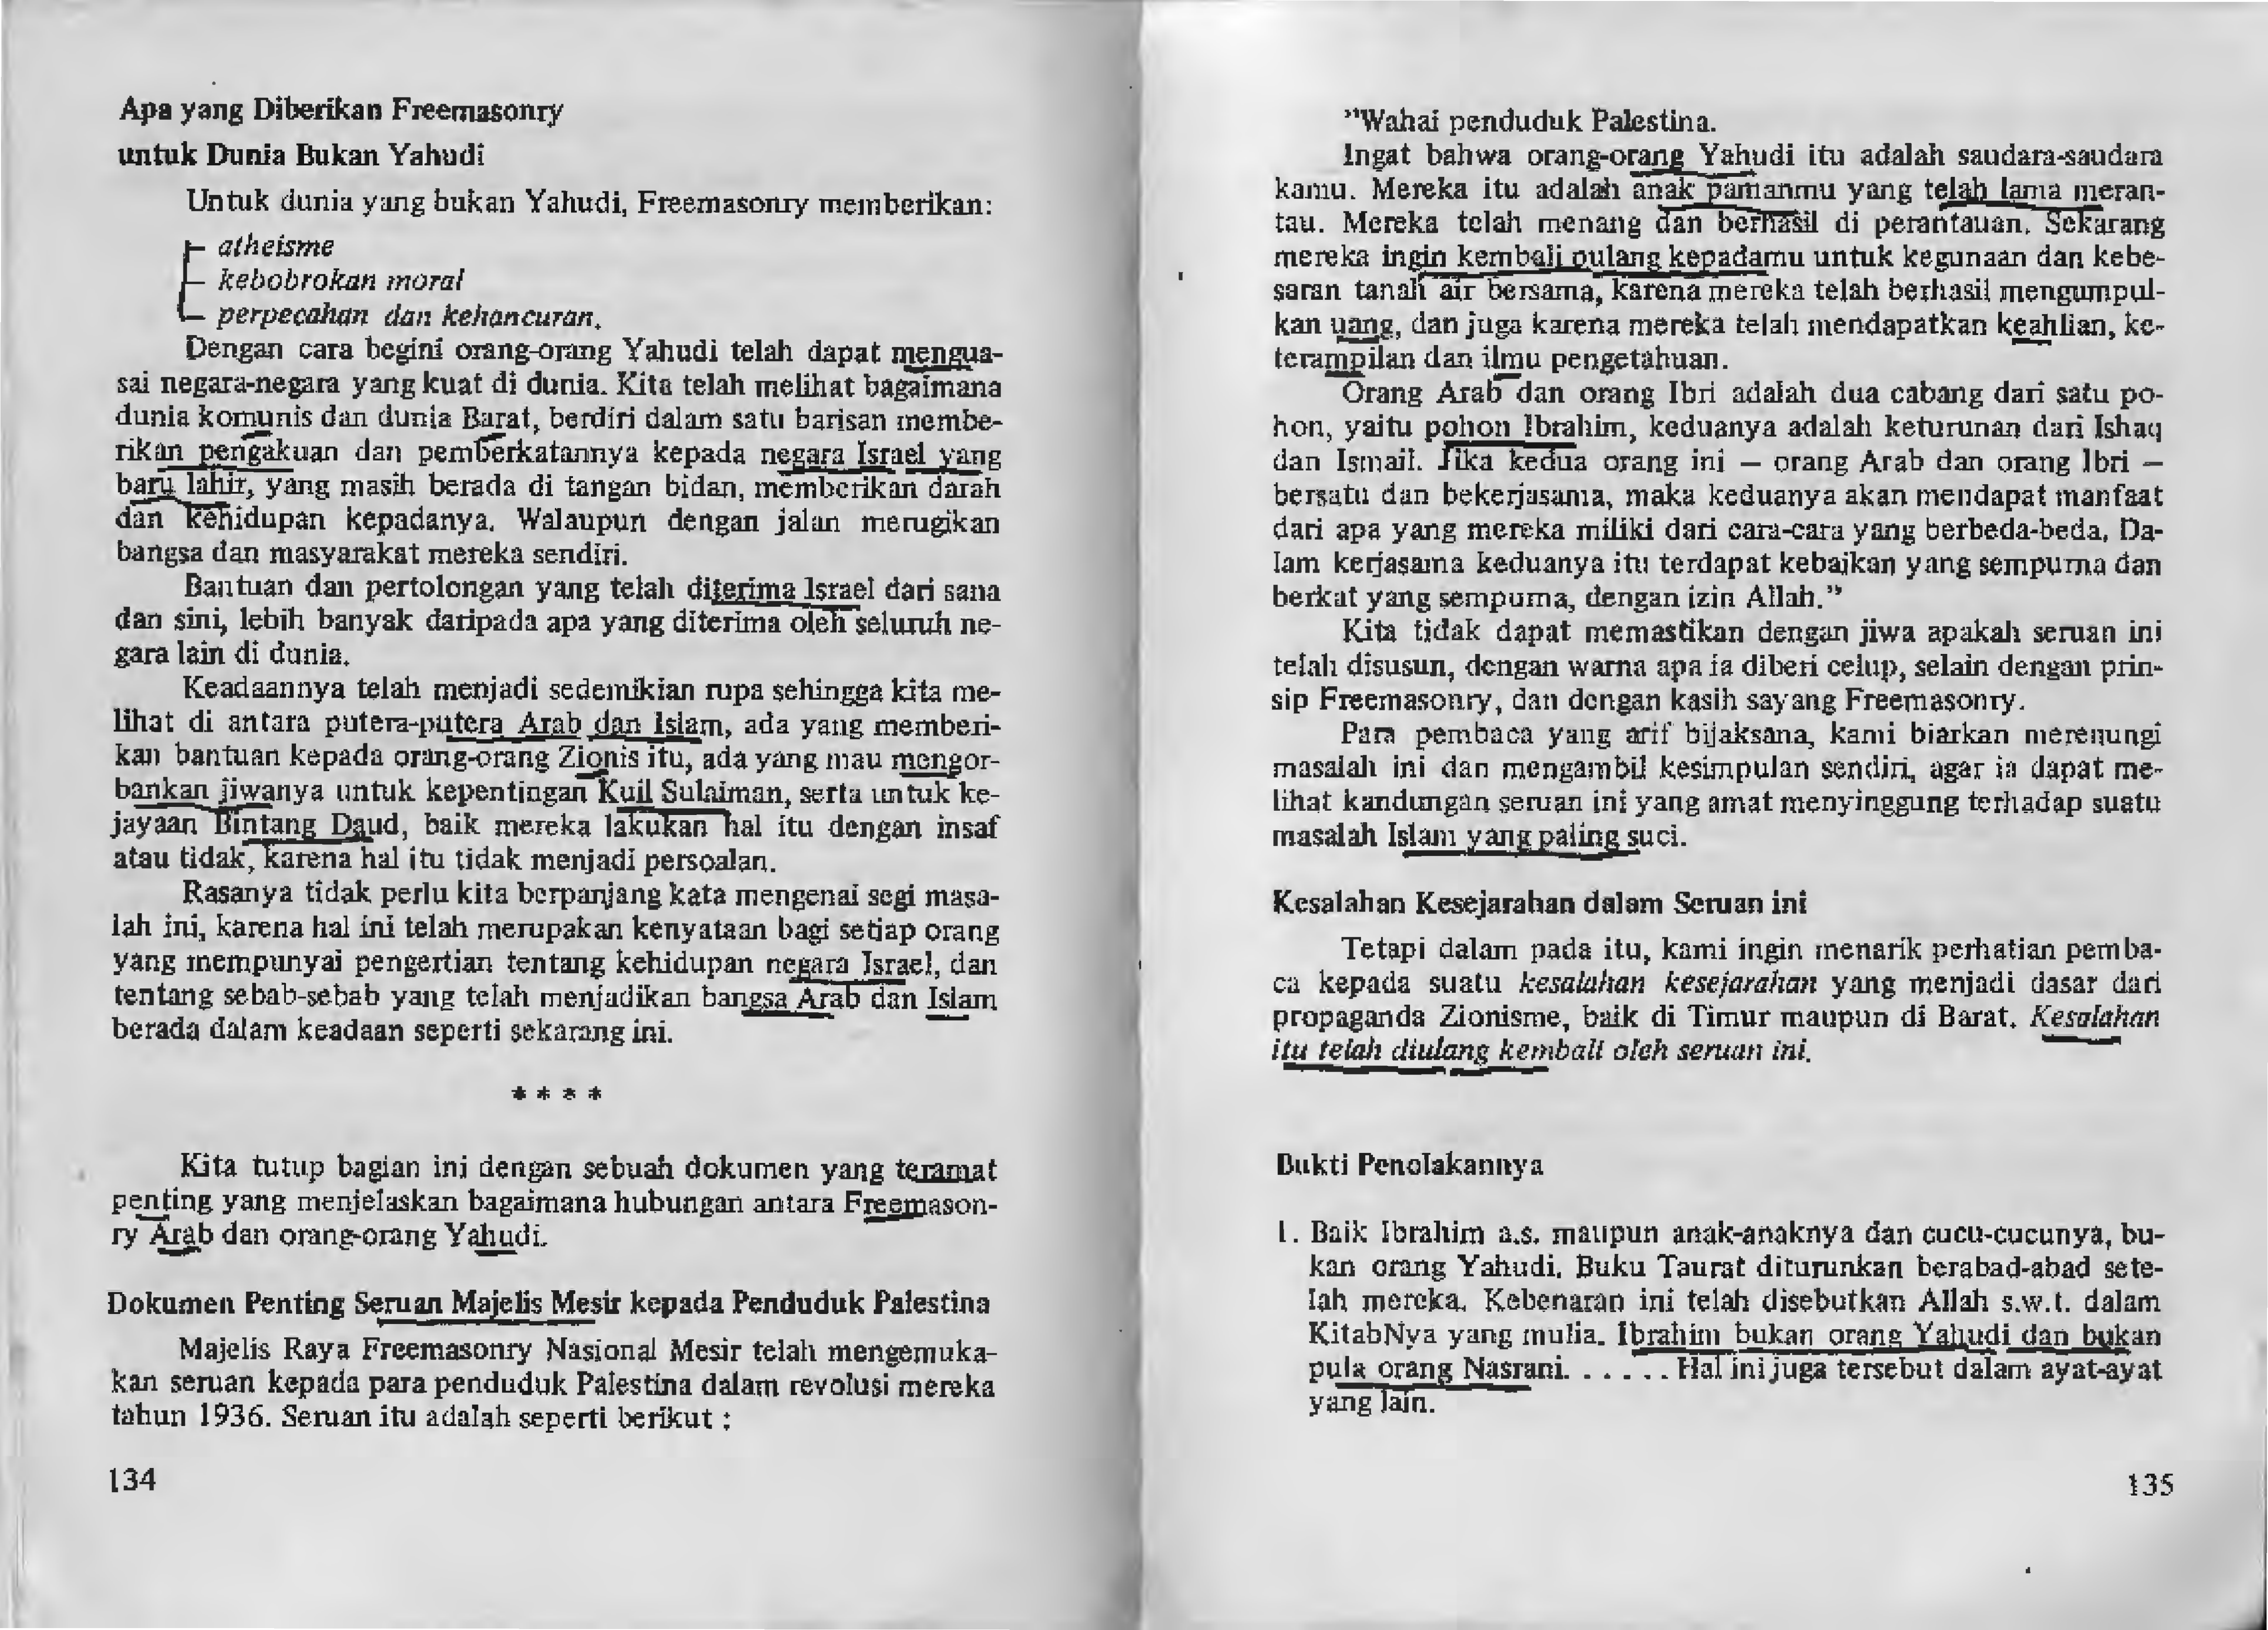 Apa yang Diberikan Freemasonry
untuk Dunia Bukan Yahudi
Untuk dunia yang bukan Yahudi, Freemasonry memberikan:
atheisme
kebobrokan moral
perpecahan dan kehancuran.
Dengan cara begini orang-orang Yahudi telah dapat mengua-
sai negara-negara yang kuat di dunia. Kita telah melihat bagaimana
dunia komunis dan dunia Barat, berdiri dalam satu barisan membe-
rikan pengakuan dan pemberkatannya kepada negara Israel yang
baru lahir, yang masih berada di tangan bidan, memberikan darah
dan kehidupan kepadanya. Walaupun dengan jalan merugikan
bangsa dan masyarakat mereka sendiri.
Bantuan dan pertolongan yang telah diterima Israel dari sana
dan sini, lebih banyak daripada apa yang diterima oleh seluruh ne-
gara lain di dunia.
Keadaannya telah menjadi sedemikian rupa sehingga kita me-
lihat di antara putera-putera Arab dan Islam, ada yang memberi-
kan bantuan kepada orang-orang Zionis itu, ada yang mau mengor-
bankan jiwanya untuk kepentingan Kuil Sulaiman, serta untuk ke-
jayaan Bintang Daud, baik mereka lakukan hal itu dengan insaf
atau tidak, karena hal itu tidak menjadi persoalan.
Rasanya tidak perlu kita berpanjang kata mengenai segi masa-
lah ini, karena hal ini telah merupakan kenyataan bagi setiap orang
yang mempunyai pengertian tentang kehidupan negara Israel, dan
tentang sebab-sebab yang telah menjadikan bangsa Arab dan Islam
berada dalam keadaan seperti sekarang ini.
* * * *
Kita tutup bagian ini dengan sebuah dokumen yang teramat
penting yang menjelaskan bagaimana hubungan antara Freemason-
ry Arab dan orang-orang Yahudi.
Dokumen Penting Seruan Majelis Mesir kepada Penduduk Palestina
Majelis Raya Freemasonry Nasional Mesir telah mengemuka-
kan seruan kepada para penduduk Palestina dalam revolusi mereka
tahun 1936. Seruan itu adalah seperti berikut :
134
"Wahai penduduk Palestina.
Ingat bahwa orang-orang Yahudi itu adalah saudara-saudara
kamu. Mereka itu adalah anak pamanmu yang telah lama meran-
tau. Mereka telah menang dan berhasil di perantauan. Sekarang
mereka ingin kembali pulang kepadamu untuk kegunaan dan kebe-
saran tanah air bersama, karena mereka telah berhasil mengumpul-
kan uang, dan juga karena mereka telah mendapatkan keahlian, ke-
terampilan dan ilmu pengetahuan.
Orang Arab dan orang Ibri adalah dua cabang dari satu po-
hon, yaitu pohon Ibrahim, keduanya adalah keturunan dari Ishaq
dan Ismail. Jika kedua orang ini — orang Arab dan orang Ibri —
bersatu dan bekerjasama, maka keduanya akan mendapat manfaat
dari apa yang mereka miliki dari cara-cara yang berbeda-beda. Da-
lam kerjasama keduanya itu terdapat kebaikan yang sempurna dan
berkat yang sempurna, dengan izin Allah."
Kita tidak dapat memastikan dengan jiwa apakah seruan ini
telah disusun, dengan warna apa ia diberi celup, selain dengan prin-
sip Freemasonry, dan dengan kasih sayang Freemasonry.
Para pembaca yang arif bijaksana, kami biarkan merenungi
masalah ini dan mengambil kesimpulan sendiri, agar ia dapat me-
lihat kandungan seruan ini yang amat menyinggung terhadap suatu
masalah Islam yang paling suci.
Kesalahan Kesejarahan dalam Seruan ini
Tetapi dalam pada itu, kami ingin menarik perhatian pemba-
ca kepada suatu kesalahan kesejarahan yang menjadi dasar dari
propaganda Zionisme, baik di Timur maupun di Barat. Kesalahan
itu telah diulang kembali oleh seruan ini.
Bukti Penolakannya
1. Baik Ibrahim a.s. maupun anak-anaknya dan cucu-cucunya, bu-
kan orang Yahudi. Buku Taurat diturunkan berabad-abad sete-
lah mereka. Kebenaran ini telah disebutkan Allah s.w.t. dalam
KitabNya yang mulia. Ibrahim bukan orang Yahudi dan bukan
pula orang Nasrani. . . . . . Hal ini juga tersebut dalam ayat-ayat
yang lain.
135